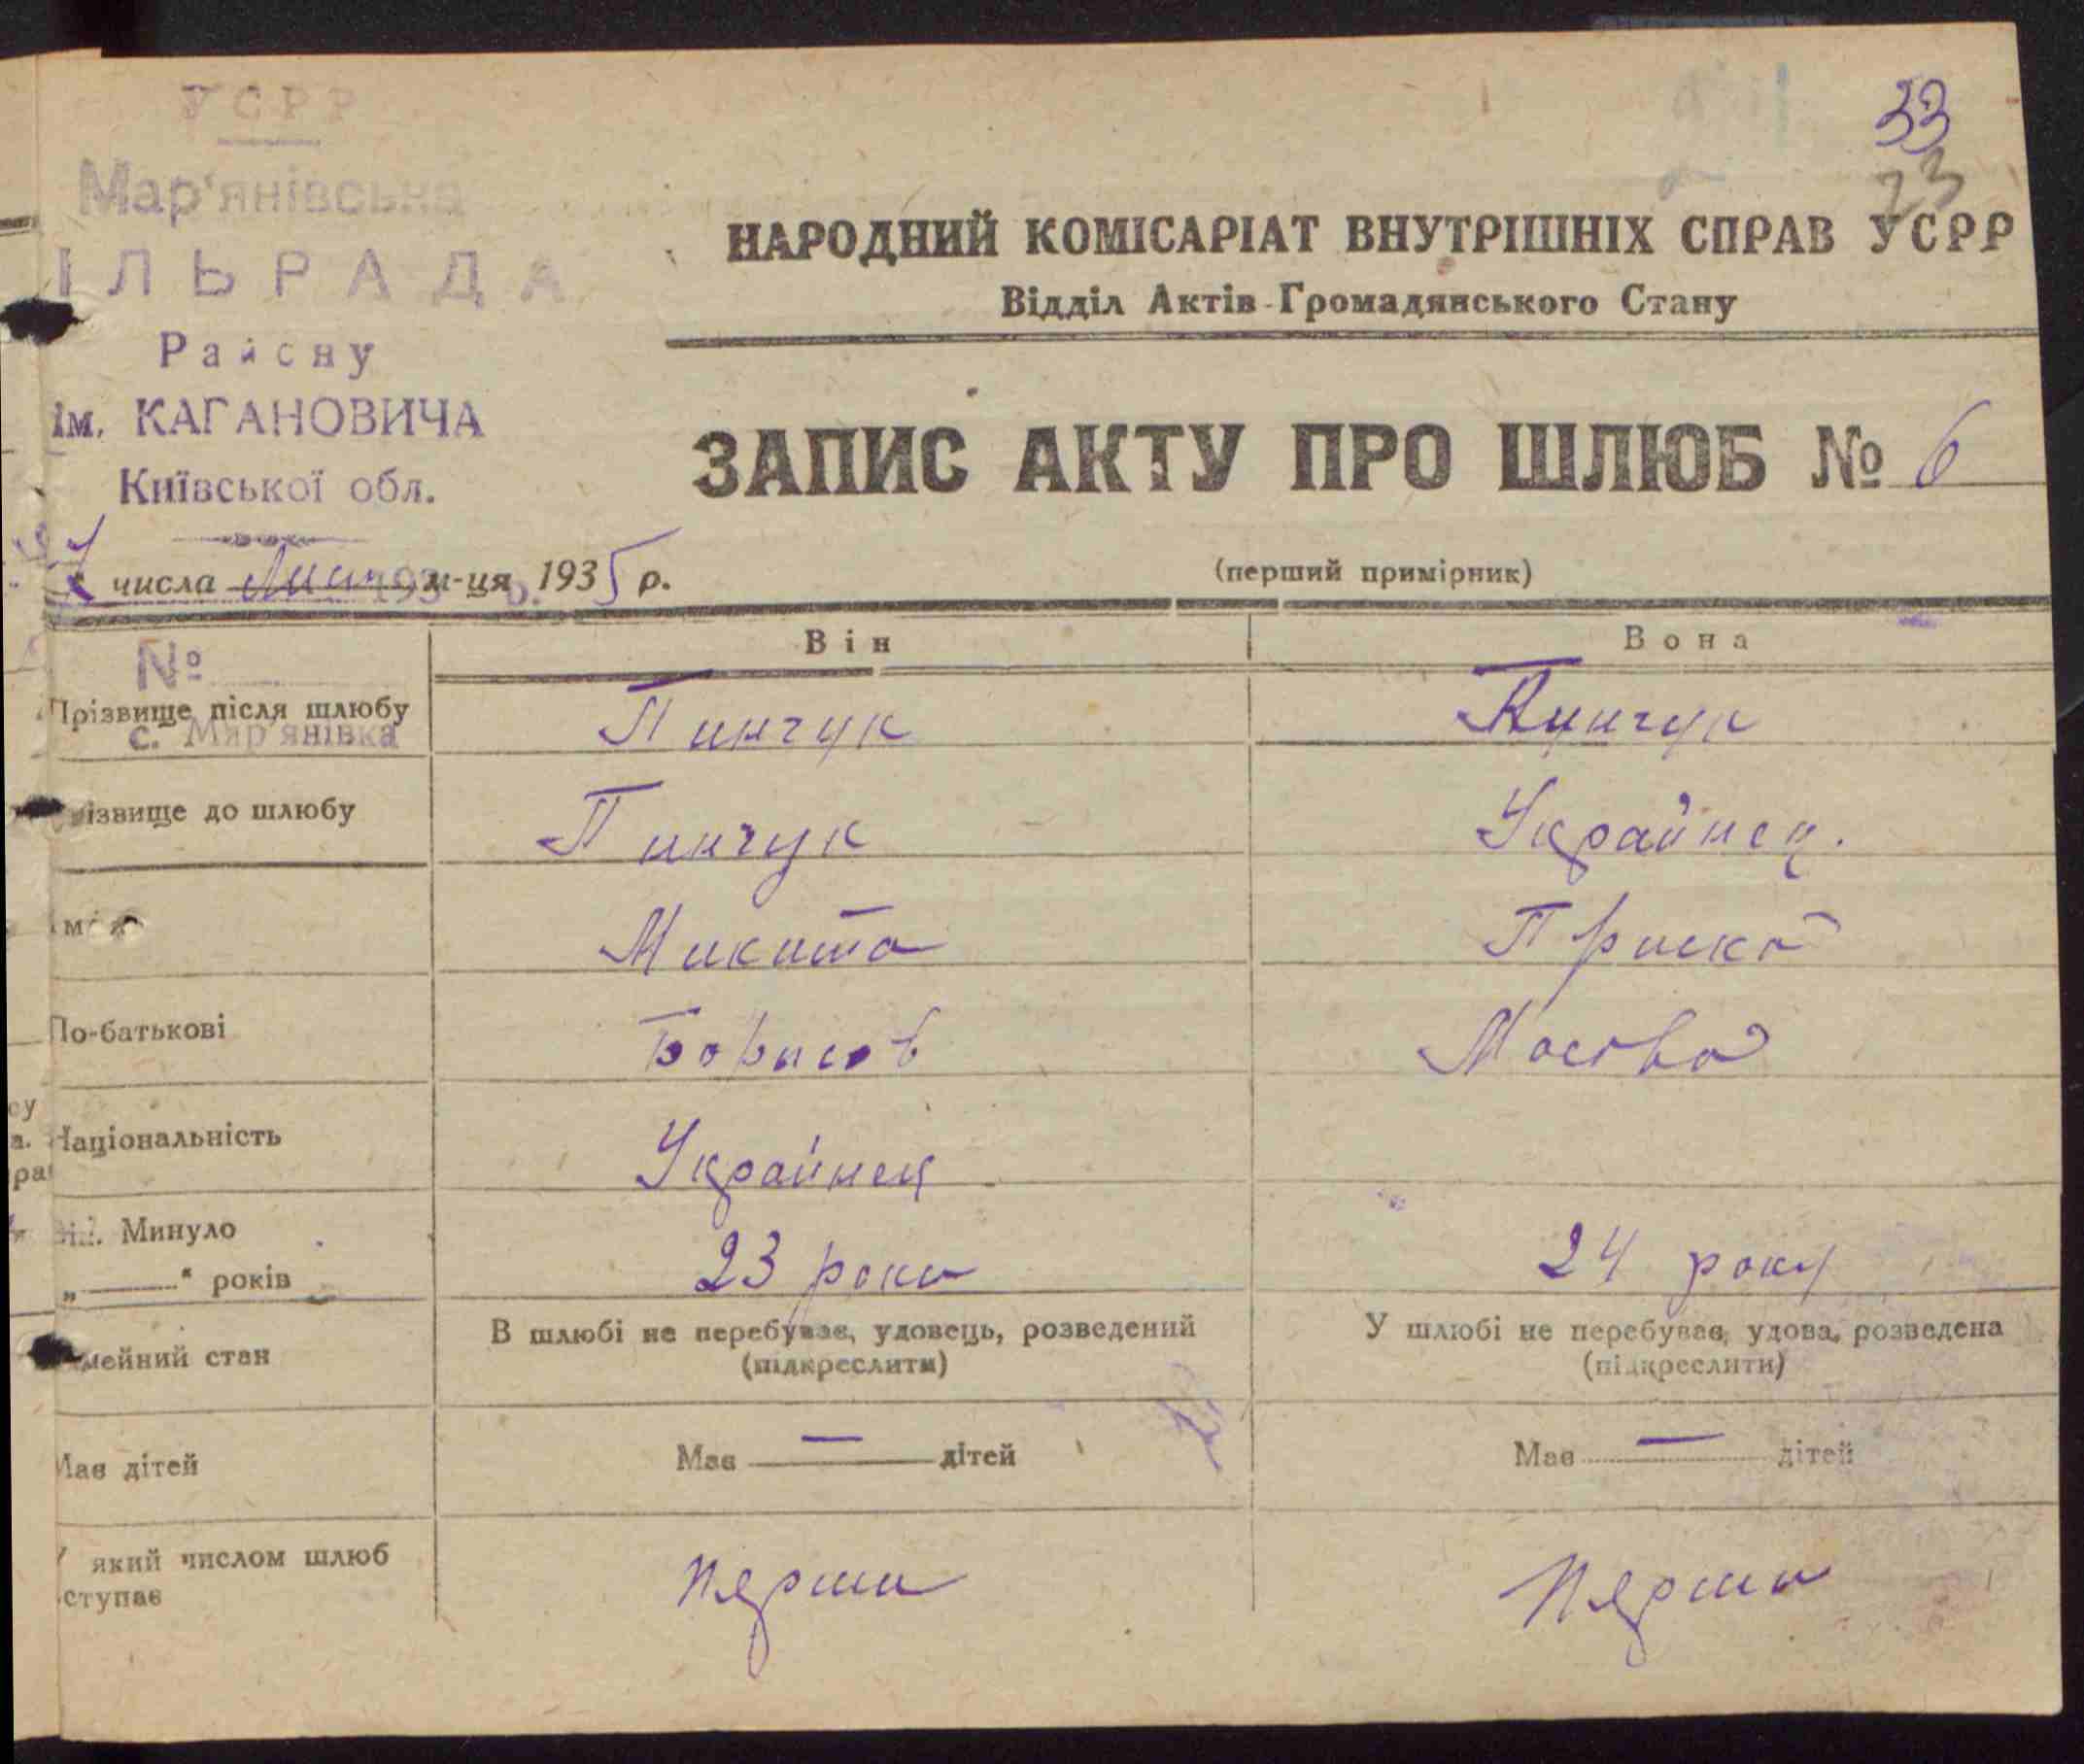 УСРР
Мар'янівська
ІЛЬРАДА
Району
ім. КАГАНОВИЧА
Київської обл.
33
23
НАРОДНИЙ КОМІСАРІАТ ВНУТРІШНІХ СПРАВ УСРР
Відділ Актів Громадянського Стану
ЗАПИС АКТУ ПРО ШЛЮБ № 6
(перший примірник)
числа м-ця 1935 р.
№
с. Мар'янівка
Він Вона
Прізвище після шлюбу Пинчук Пинчук
ізвище до шлюбу Пинчук Українец.
Микита Приська
По-батькові Борисов
Національність Українец
Минуло
„——“ років 23 роки 24 року
мейний стан В шлюбі не перебуває, удовець, розведений У шлюбі не перебуває, удова, розведена
(підкреслити) (підкреслити)
Має дітей Має — дітей Має — дітей
який числом шлюб
ступає перши перши